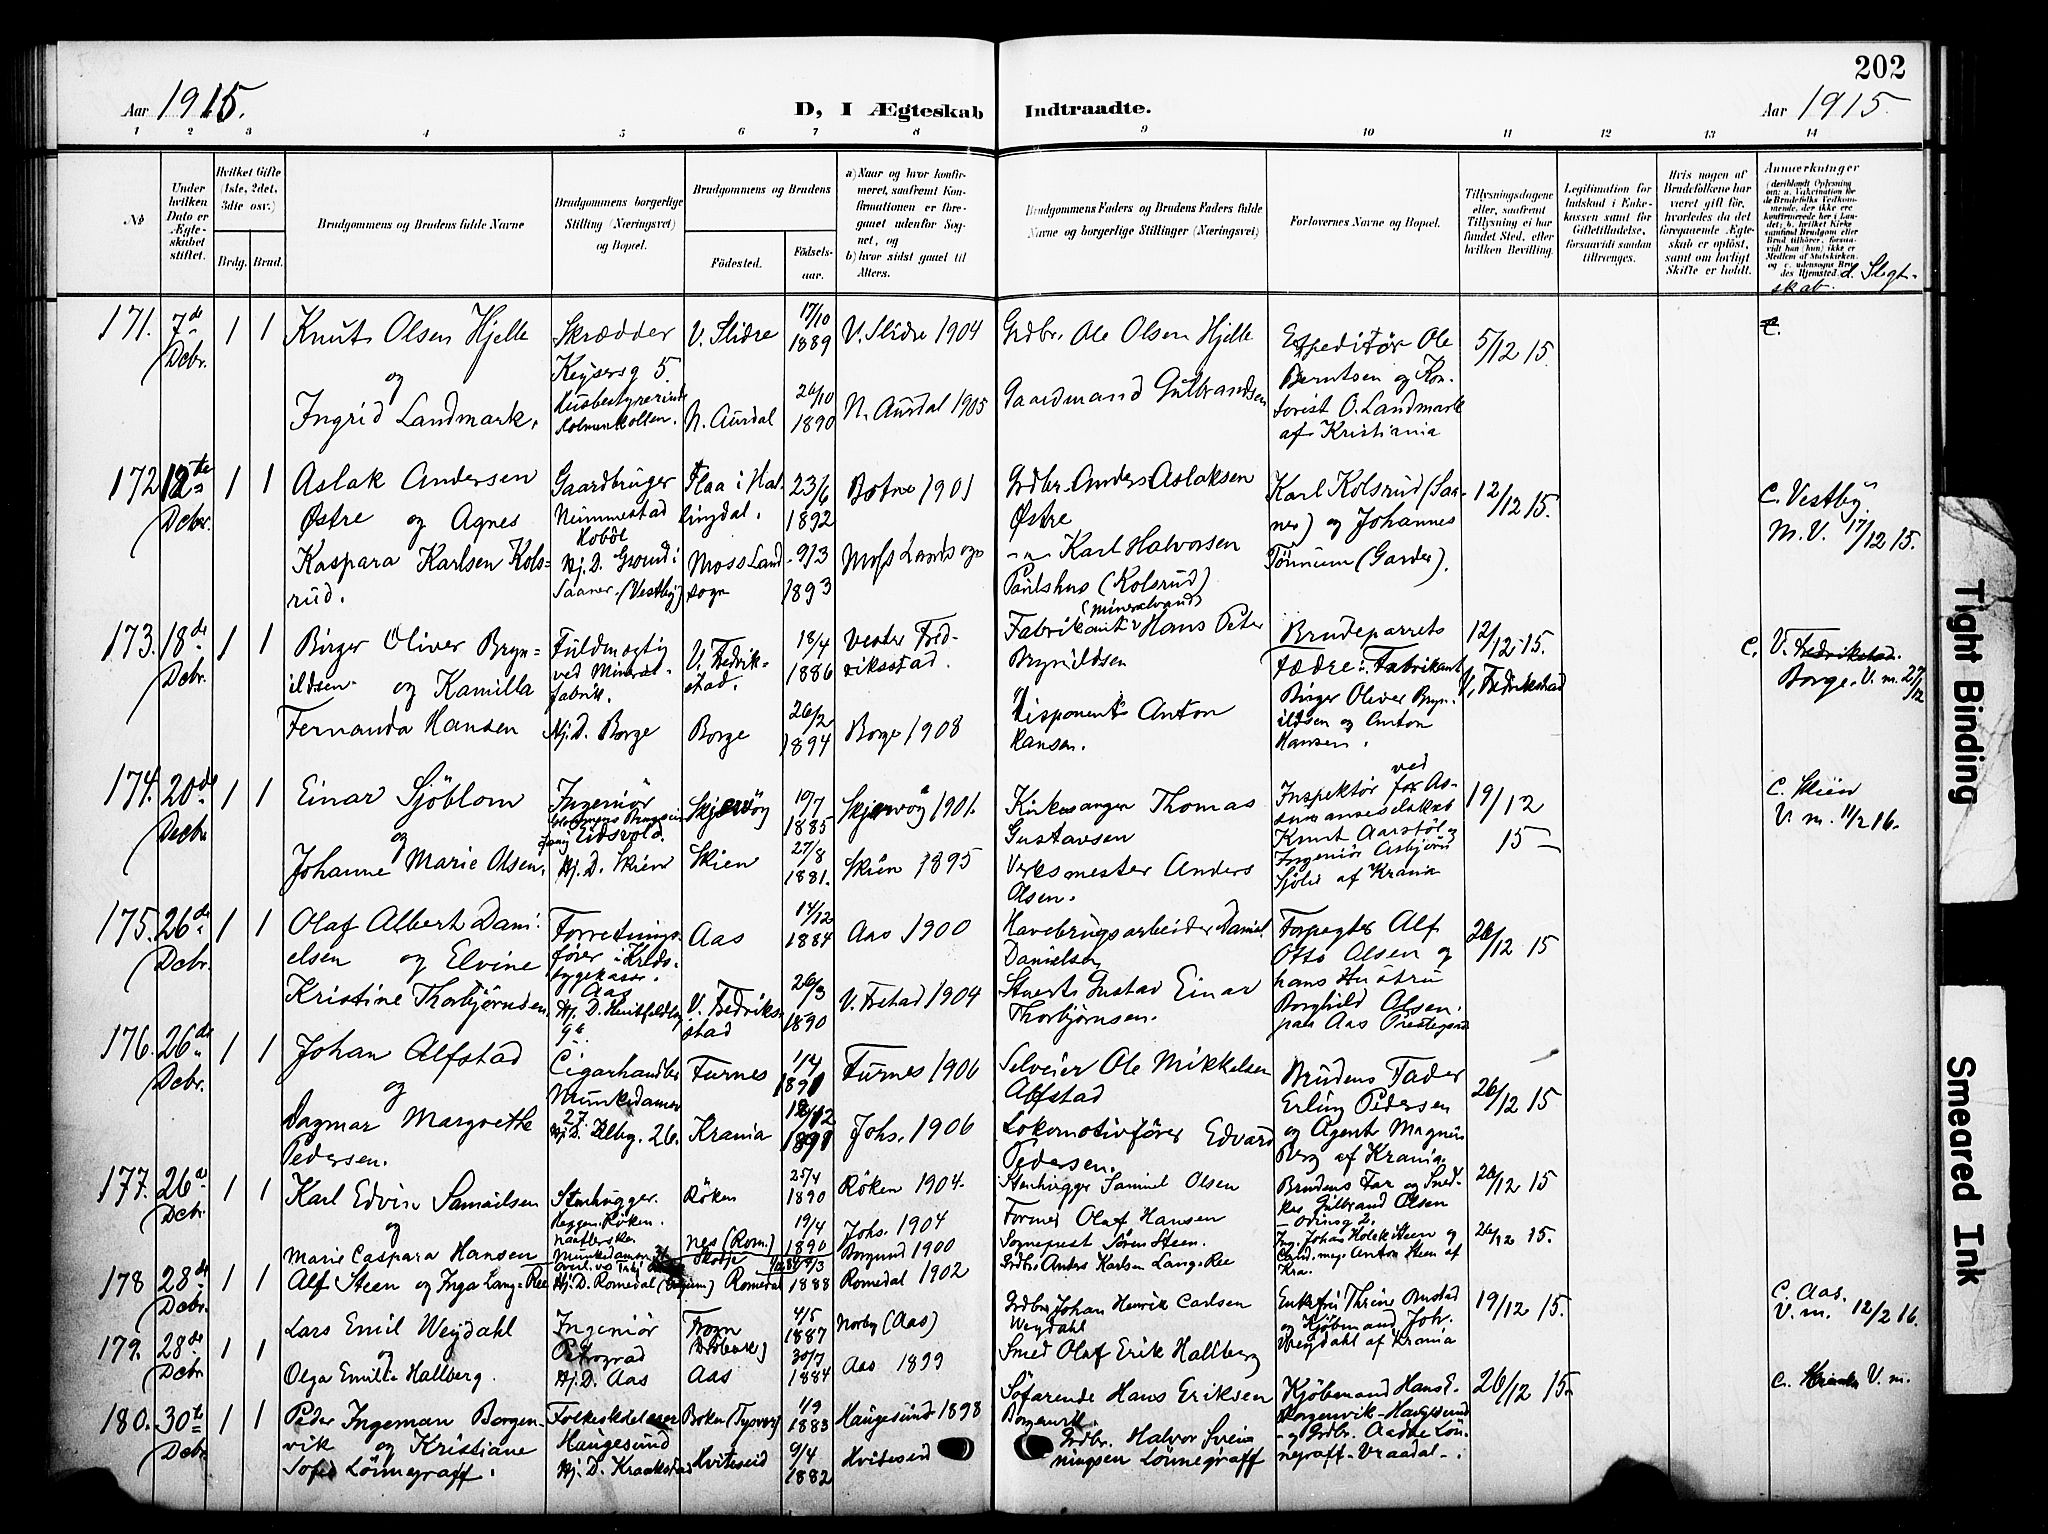 202
Aar 1915.
D, I Ægteskab Indtraadte.
Aar 1915.
1 2 3 4 5 6 7 8 9 10 11 12 13 14
No
Under hvilken Dato er Ægteskabet stiftet.
Hvilket Gifte (1ste, 2det, 3dte osv.)
Brdg. Brud.
Brudgommens og Brudens fulde Navne
Brudgommens borgerlige Stilling (Næringsvei) og Bopæl.
Brudgommens og Brudens
Fødested.
Fødselsaar.
a) Naar og hvor konfirmeret, saafremt Konfirmationen er foregaaet udenfor Sognet, og
b) hvor sidst gaaet til Alters.
Brudgommens Faders og Brudens Faders fulde Navne og borgerlige Stillinger (Næringsvei)
Forlovernes Navne og Bopæl.
Tillysningsdagene eller, saafremt Tillysning ei har fundet Sted, efter hvilken Bevilling.
Legitimation for Indskud i Enkekassen samt for Giftetilladelse, forsaavidt saadan tiltrænges.
Hvis nogen af Brudefolkene har været gift før, hvorledes da det foregaaende Ægteskab er opløst, samt om lovligt Skifte er holdt.
Anmerkninger
d. Slegtskab.
171. 7de Dcbr. 1 1
Knut Olsen Hjelle
og
Ingrid Landmark.
Skrædder
Keysersg 5.
Husbestyrerinde
Holmenkollen.
V. Slidre
N. Aurdal
17/10 1889
26/10 1890
V. Slidre 1904
N. Aurdal 1905
Grdbr. Ole Olsen Hjelle
Gaardmand Gulbrandsen
Expeditør Ole
Berntsen og Kontorist O. Landmark
af Kristiania
5/12 15.
172 12te Dcbr. 1 1
Aslak Andersen
Østre og Agnes
Kaspara Karlsen Kolsrud.
Gaardbruger
Hobøl
Hj. D. Grund i
Saaner (Vestby)
Flaa i Hallingdal.
Moss Landsogn
23/6 1892
9/3 1893
Botne 1901
Moss Landsogn
Grdbr. Anders Aslaksen
Østre
-"- Karl Halvorsen
(Kolsrud)
Karl Kolsrud (Saaner) og Johannes
Tønnum (Garder).
12/12 15.
C. Vestby
M.V. 17/12 15.
173. 18de Dcbr. 1 1
Birger Oliver Brynildsen og Kamilla
Fernanda Hansen
Fuldmægtig
ved Mineralfabrik.
Hj. D. Borge
V. Fredrikstad.
Borge
18/4 1886
26/2 1894
Vester Fredriksstad.
Borge 1908
(mineralvand)
Fabrikant Hans Peter
Brynildsen
Disponent Anton
Hansen.
Brudeparrets
Fædre: Fabrikant
Birger Oliver Brynildsen og Anton
Hansen.
12/12 15.
V. Fredrikstad
C. V. Fredrikstad.
Borge. V. m. 27/12
174. 20de Decbr. 1 1
Einar Sjöblom
og
Johanne Marie Olsen.
Ingeniör
Eidsvold.
Hj. D. Skien
Skjervöy
Skien
19/7 1885
27/8 1881.
Skjervöy 1901.
Skien 1895
Kirkesanger Thomas
Gustavsen
Verksmester Anders
Olsen.
Inspektör ved
Knut Aarstöl og
Ingeniör Asbjørn
Sjölie af Krania
19/12 15
C. Skien
V. m. 11/2 16.
175. 26de Dcbr. 1 1
Olaf Albert Danielsen og Elvine
Kristine Thorbjørnsen
Forretningsfører i Kredssygekasse.
Aas
Hj. D. Huitfeldtsg
Aas
V. Fredrikstad
14/12 1884
26/3 1890
Aas 1900
V. Frstad 1904
Havebrugsarbeider Daniel
Danielsen
Stuert Gustav Einar
Thorbjørnsen.
Forpagter Alf
Otto Olsen og
hans Hustru
Borghild Olsen.
paa Aas Prestegaard
26/12 15
176. 26de Dcbr. 1 1
Johan Alfstad
og
Dagmar Margrethe
Pedersen.
Cigarhandler
Munkedamsv
27.
Hj. D. Elbg. 26.
Furnes
Krania
1/4 1891
12/12 1891
Furnes 1906
Johs. 1906
Selveier Ole Mikkelsen
Alfstad
Lokomotivfører Edvard
Pedersen.
Brudens Fader
Erling Pedersen
og Agent Magnus
Berg af Krania.
26/12 15
177. 26de Dcbr. 1 1
Karl Edvin Samuelsen
og
Marie Caspara Hansen
Stenhugger.
Heggen. Röken.
Munkedamsv
Röken
Nes (Rom.)
25/4 1890
19/4 1890
Röken 1904.
Johs. 1904
Stenhugger Samuel Olsen
Former Olaf Hansen
Brudens Far og Snedker Gulbrand Olsen
Odinsg 2.
26/12 15
178 28de Dcbr. 1 1
Alf Steen og Inga Lang-Ree
Hj. D. Romedal
Skodje
Romedal
1888
Borgund 1900
Romedal 1902
Sognepræst Sören Steen.
Grdbr. Anders Karlsen Lang-Ree
Ing. Johan Holck Steen og
Cand. mag. Anton Steen af
Kra.
26/12 15.
179. 28de Dcbr. 1 1
Lars Emil Weydahl
og
Olga Emilie Hallberg.
Ingeniör
Petrograd
Hj. D. Aas
Frogn
(Drøbak)
Aas
4/5 1887
30/7 1884
Norby (Aas)
Aas 1899
Grdbr. Johan Henrik Carlsen
Weydahl
Smed Olaf Erik Hallberg
Enkefru Thrine Onstad
og Kjöbmand Joh.
Weydahl af Krania
19/12 15.
C. Aas.
V. m. 12/2 16.
180. 30te Dcbr. 1 1
Peder Ingeman Borgenvik og Kristiane
Sofie Lönnegraff.
Folkeskolelærer
Haugesund
Hj. D. Kraakstad
Boken (Tysvær)
Hviteseid
4/9 1883
9/4 1882
Haugesund 1898
Hviteseid
Söfarende Hans Eriksen
Borgenvik.
Grdbr. Halvor Sveinungsen Lönnegraff
Kjöbmand Hans E.
Borgenvik-Haugesund
og Grdbr. Aadne Lönnegraff-Vraadal.
26/12 15.
C. V. m.
Tight Binding
Smeared Ink